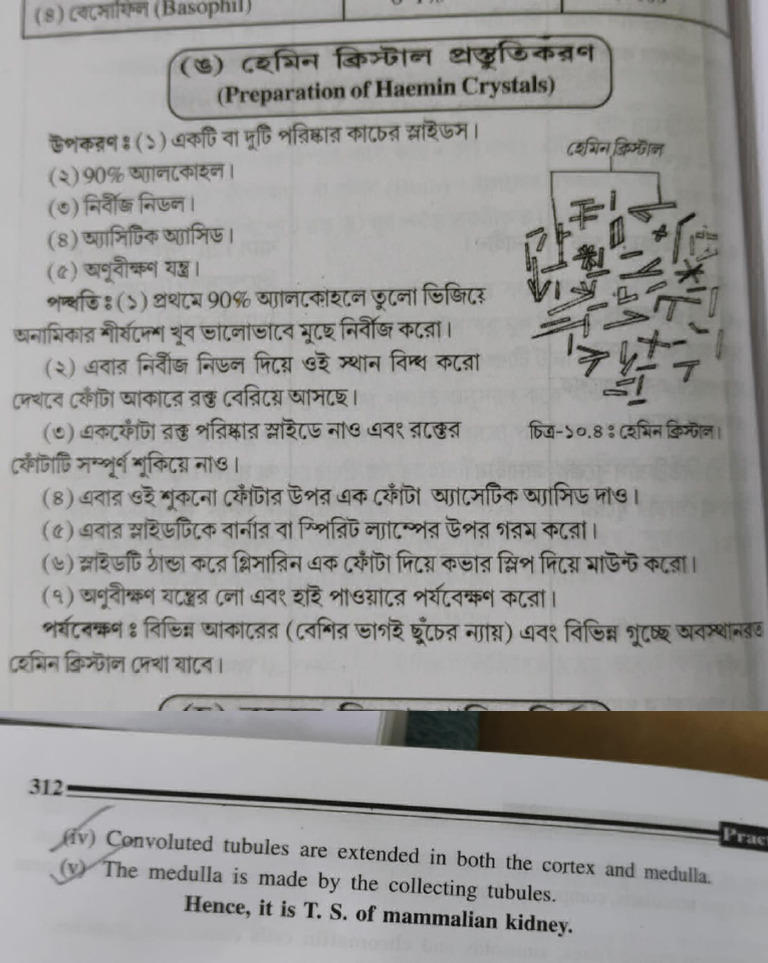 (৪) বেসোফিল (Basophil)
(ঙ) হেমিন ক্রিস্টাল প্রস্তুতিকরণ
(Preparation of Haemin Crystals)
উপকরণ ঃ (১) একটি বা দুটি পরিষ্কার কাচের স্লাইডস।
(২) 90% অ্যালকোহল।
(৩) নির্বীজ নিডল।
(৪) অ্যাসিটিক অ্যাসিড।
(৫) অণুবীক্ষণ যন্ত্র।
হেমিন ক্রিস্টাল
পদ্ধতি ঃ (১) প্রথমে 90% অ্যালকোহলে তুলো ভিজিয়ে
অনামিকার শীর্ষদেশ খুব ভালোভাবে মুছে নির্বীজ করো।
(২) এবার নির্বীজ নিডল দিয়ে ওই স্থান বিদ্ধ করো
দেখবে ফোঁটা আকারে রক্ত বেরিয়ে আসছে।
(৩) একফোঁটা রক্ত পরিষ্কার স্লাইডে নাও এবং রক্তের
ফোঁটাটি সম্পূর্ণ শুকিয়ে নাও।
চিত্র-১০.4 ঃ হেমিন ক্রিস্টাল।
(৪) এবার ওই শুকনো ফোঁটার উপর এক ফোঁটা অ্যাসেটিক অ্যাসিড দাও।
(৫) এবার স্লাইডটিকে বার্নার বা স্পিরিট ল্যাম্পের উপর গরম করো।
(৬) স্লাইডটি ঠান্ডা করে গ্লিসারিন এক ফোঁটা দিয়ে কভার স্লিপ দিয়ে মাউন্ট করো।
(৭) অণুবীক্ষণ যন্ত্রের লো এবং হাই পাওয়ারে পর্যবেক্ষণ করো।
পর্যবেক্ষণ ঃ বিভিন্ন আকারের (বেশির ভাগই ছুঁচের ন্যায়) এবং বিভিন্ন গুচ্ছে অবস্থানরত
হেমিন ক্রিস্টাল দেখা যাবে।
312
Prac
(iv) Convoluted tubules are extended in both the cortex and medulla.
(v) The medulla is made by the collecting tubules.
Hence, it is T. S. of mammalian kidney.